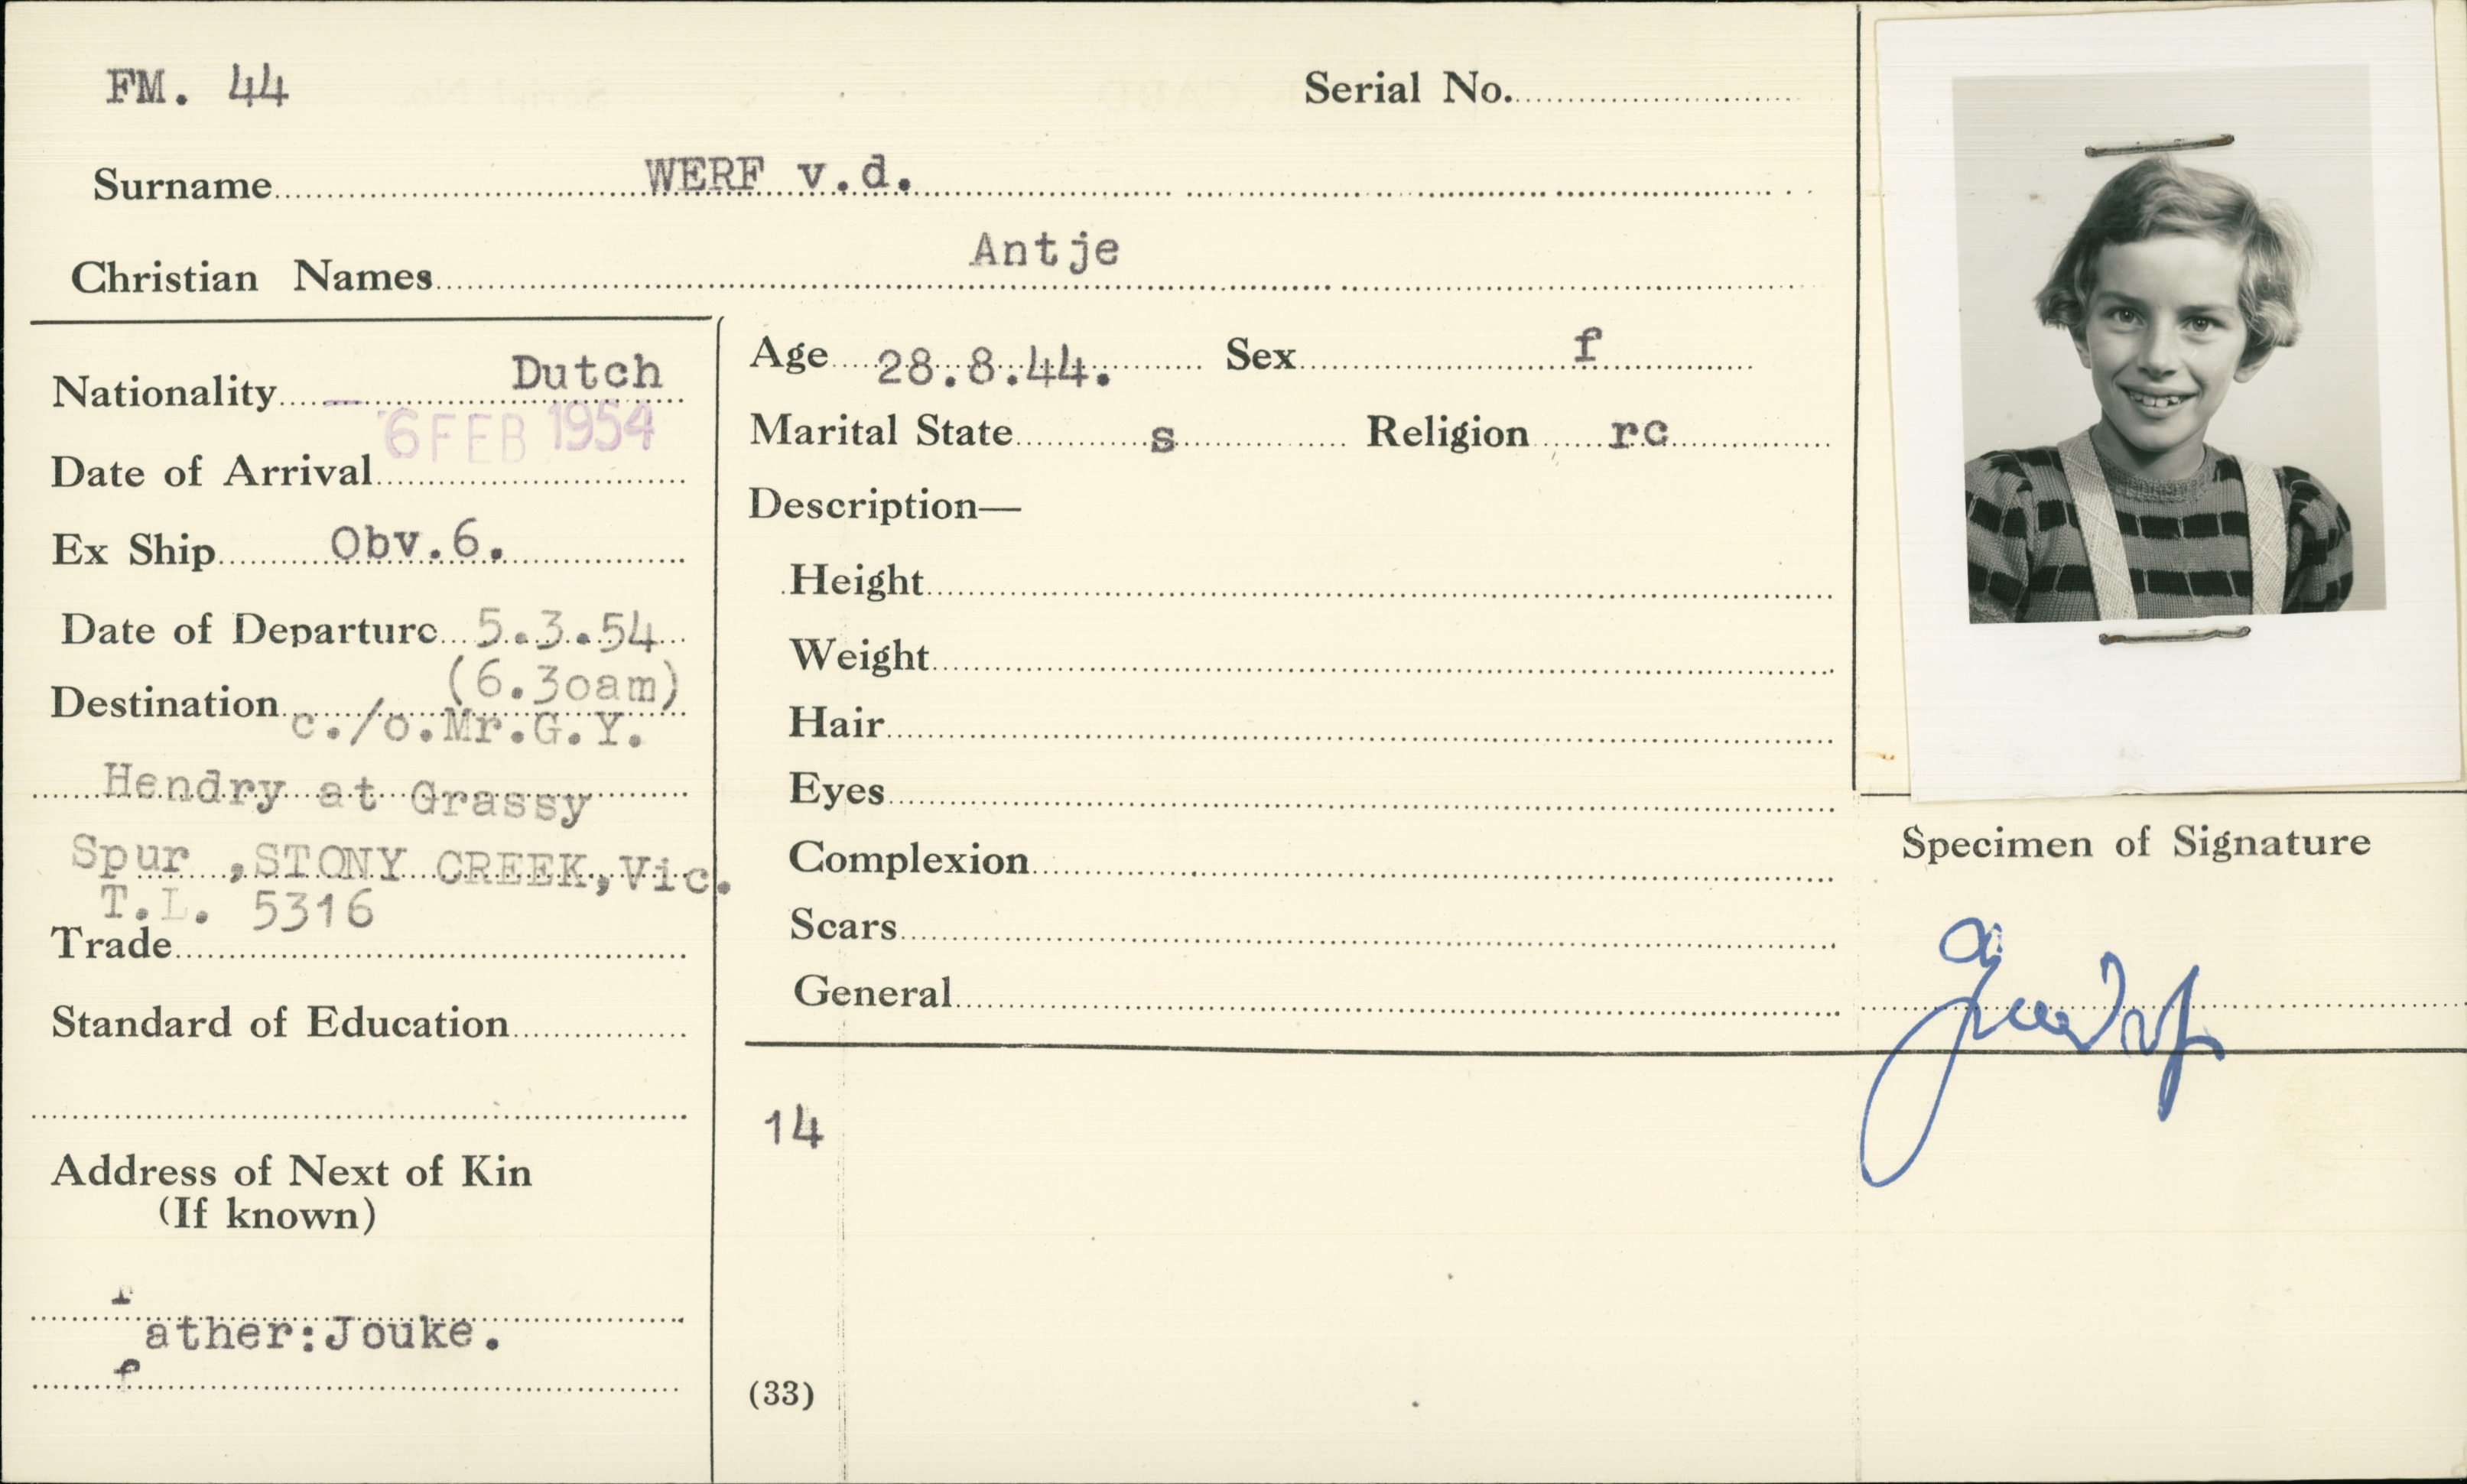 FM. 44
Serial No.
Surname WERF v.d.
Christian Names Antje
Nationality Dutch
Date of Arrival - 6 FEB 1954
Ex Ship Obv.6.
Date of Departure 5.3.54
(6.3oam)
Destination c./o.Mr.G.Y.
Hendry at Grassy
Spur ,STONY CREEK,Vic.
T.L. 5316
Trade
Standard of Education
Address of Next of Kin
(If known)
father:Jouke.
Age 28.8.44. Sex f
Marital State s Religion rc
Description—
Height
Weight
Hair
Eyes
Complexion
Scars
General
14
(33)
Specimen of Signature